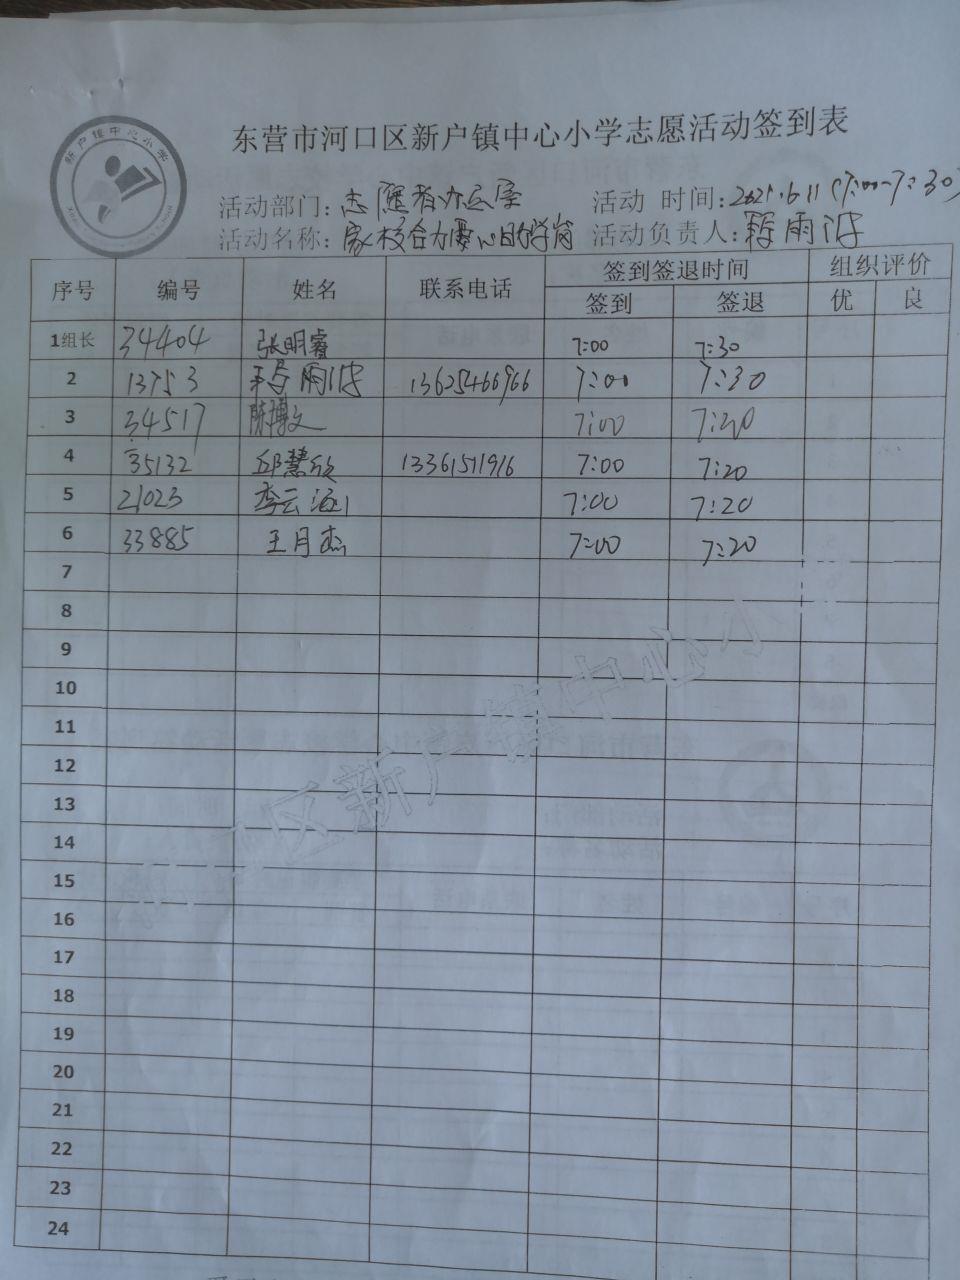 新户镇中心小学
东营市河口区新户镇中心小学志愿活动签到表
活动部门：志愿者办公室 活动 时间：2021.6.11（7:00-7:30）
活动名称：家校合力 护学岗 活动负责人：雨
序号 编号 姓名 联系电话 签到签退时间 组织评价
签到 签退 优 良
1组长 34404 张明睿 7:00 7:30
2 13753 雨 13625466966 7:00 7:30
3 34517 陈博文 7:00 7:20
4 35132 邱慧欣 13361511916 7:00 7:20
5 21023 李云涵 7:00 7:20
6 33885 王月杰 7:00 7:20
7
8
9
10
11
12
13
14
15
16
17
18
19
20
21
22
23
24
区新户镇中心小